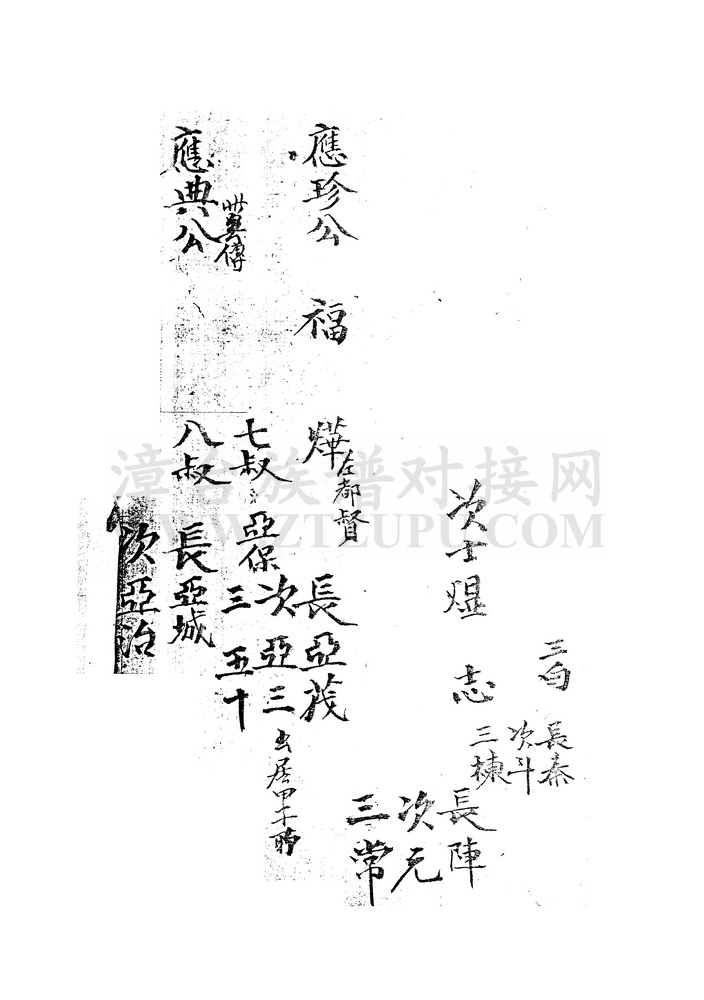 三
長泰
次斗
三棟
次士煜
志
長陣
次元
三常
應珍公
福
燁
左都督
長亞茂
次亞三
出居甲子所
三五十
七叔
亞保
應典公
八叔
長亞城
次亞治
漳台族谱对接网
WWW.ZTZUPU.COM